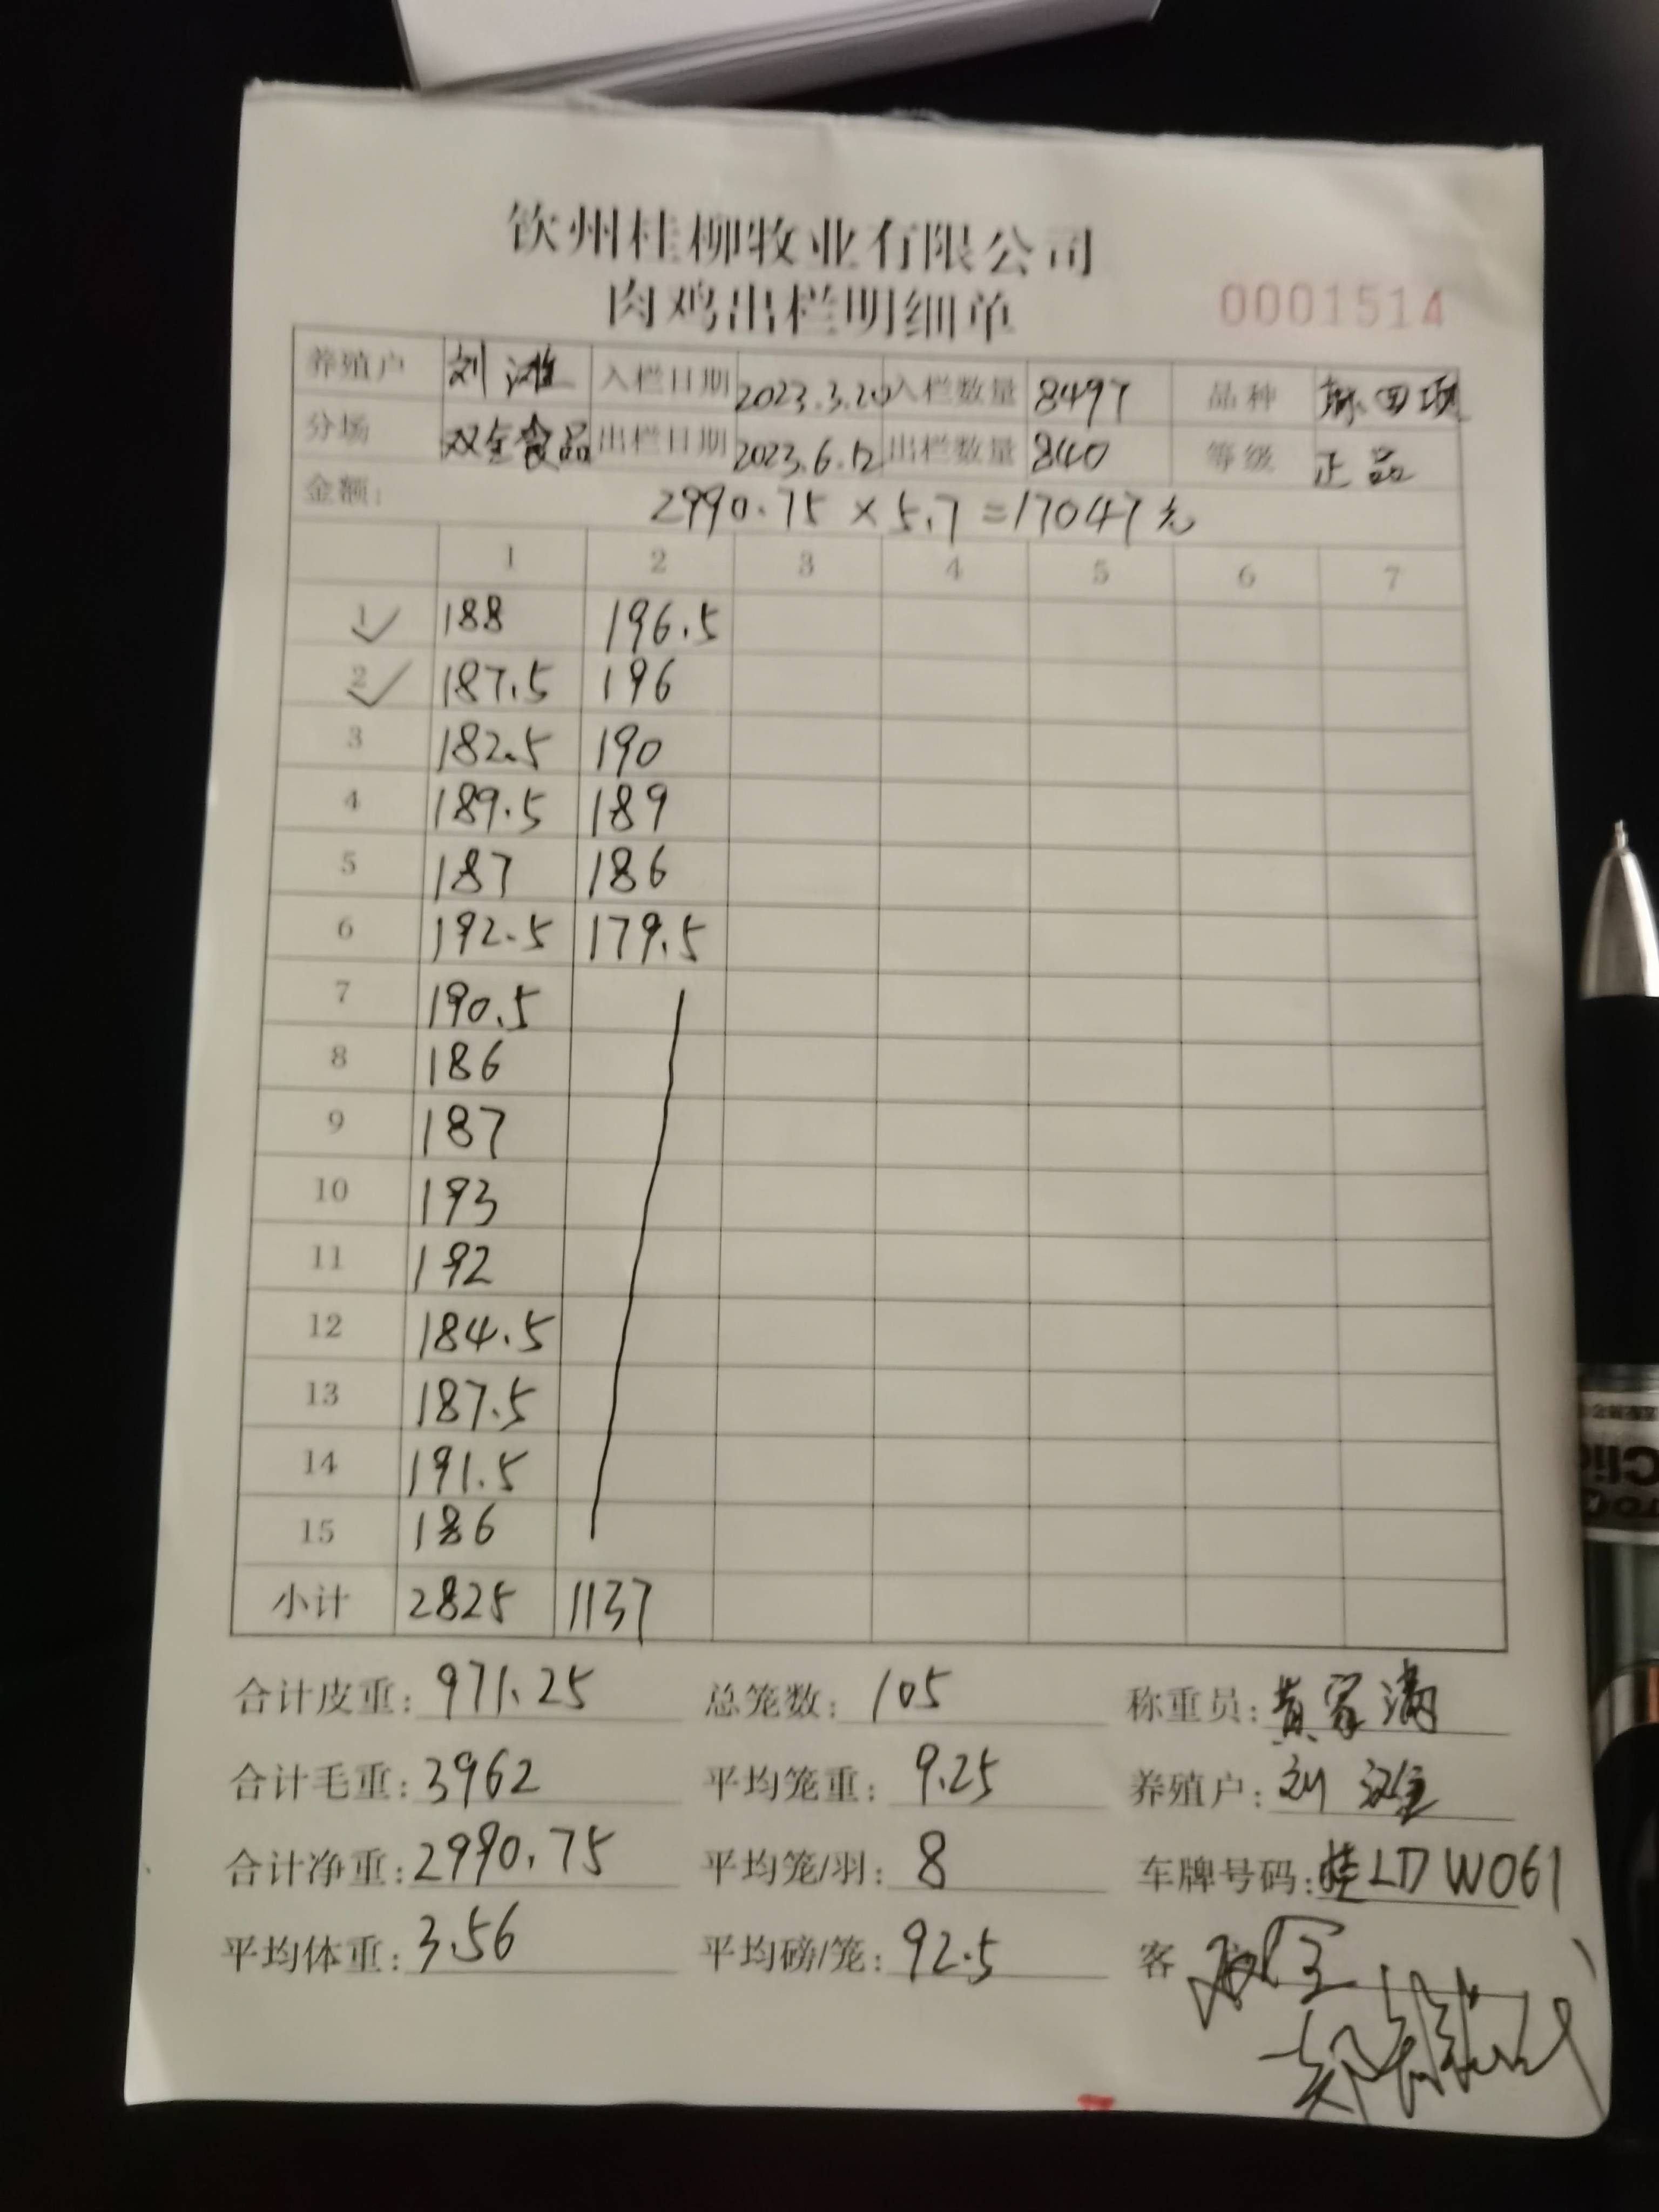 钦州桂柳牧业有限公司
肉鸡出栏明细单
0001514
养殖户 刘 入栏日期 2023.3.20 入栏数量 8497 品种
分场 双全食品 出栏日期 2023.6.12 出栏数量 840 等级 正品
金额: 2990.75 × 5.7 = 17047元
1 2 3 4 5 6 7
1 188 196.5
2 187.5 196
3 182.5 190
4 189.5 189
5 187 186
6 192.5 179.5
7 190.5
8 186
9 187
10 193
11 192
12 184.5
13 187.5
14 191.5
15 186
小计 2825 1137
合计皮重: 971.25 总笼数: 105 称重员: 黄家满
合计毛重: 3962 平均笼重: 9.25 养殖户: 刘
合计净重: 2990.75 平均笼/羽: 8 车牌号码: 桂LDW061
平均体重: 3.56 平均磅/笼: 92.5 客